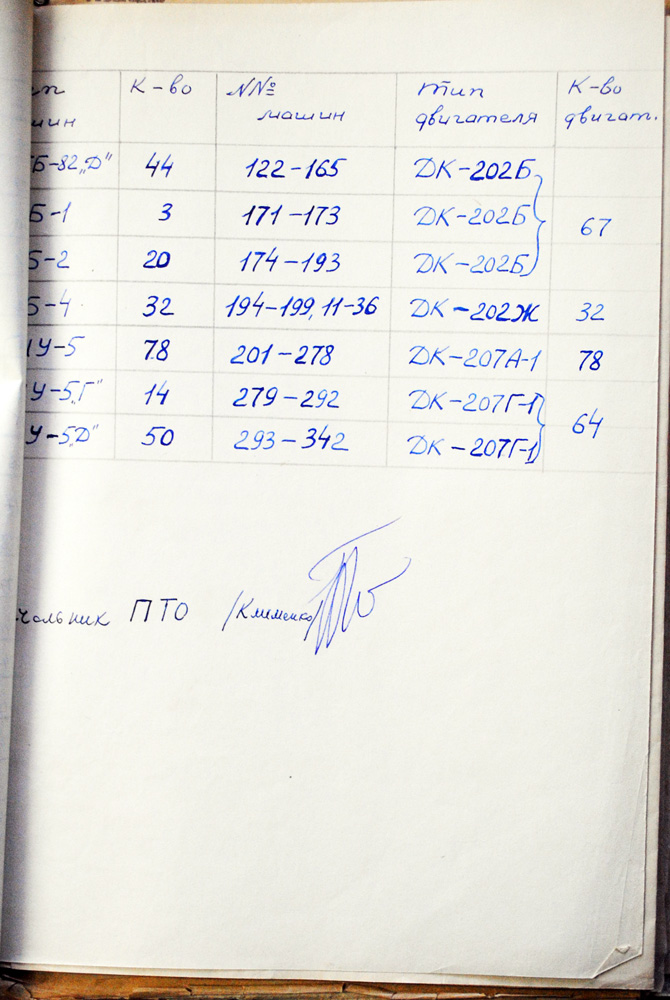 ип К-во NNº Тип К-во
шин машин двигателя двигат.
ТБ-82„Д" 44 122-165 ДК-202Б
Б-1 3 171-173 ДК-202Б 67
Б-2 20 174-193 ДК-202Б
Б-4 32 194-199, 11-36 ДК-202Ж 32
ТУ-5 78 201-278 ДК-207А-1 78
У-5„Г" 14 279-292 ДК-207Г-1 64
У-5„Д" 50 293-342 ДК-207Г-1
чальник ПТО /Клименко/